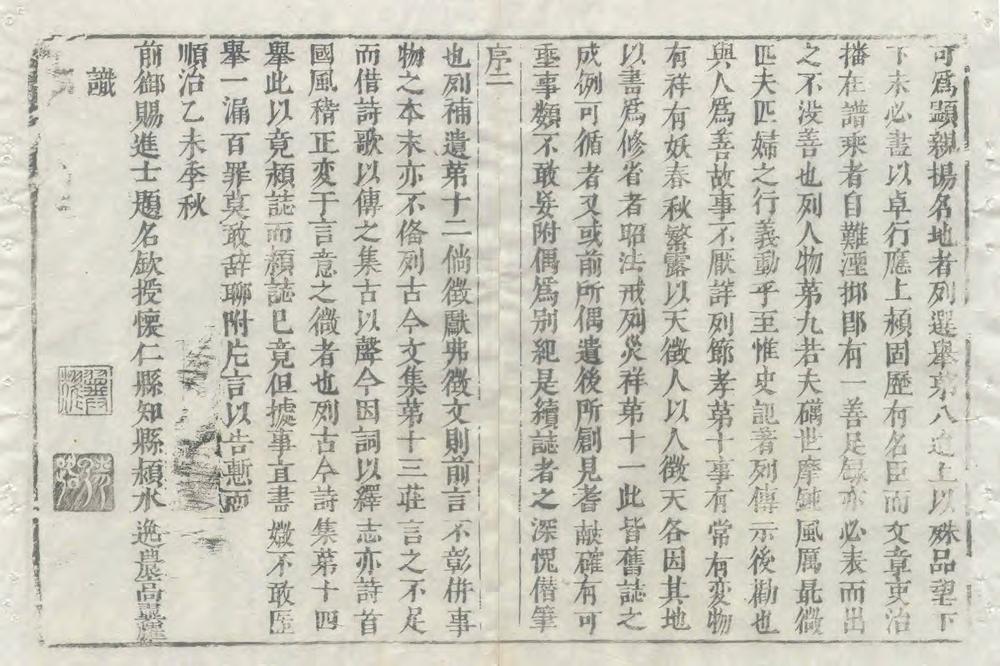 可爲顯親揚名地者列選舉第八迨上以殊品望下
下未必盡以卓行應上潁固歷有名臣而文章吏治
播在譜乘者自難湮掷即有一善足錄亦必表而出
之不没善也列人物第九若夫礪世摩鈍風厲最微
匹夫匹婦之行義動乎至惟史記著列傳示後勸也
與人爲善故事不厭詳列節孝第十事有常有変物
有祥有妖春秋繁露以天徵人以人徵天各因其地
以書爲修省者昭法戒列災祥第十一此皆舊誌之
成例可循者又或前所偶遺後所創見者献確有可
埀事類不敢妄附偶爲别紀是續誌者之深愧僣筆
序二
也列補遺第十二倘徵獻弗徵文則前言不彰倂事
物之本末亦不俻列古今文集第十三莊言之不足
而借詩歌以傳之集古以聲今因詞以繹志亦詩首
國風稽正変于言意之微者也列古今詩集第十四
舉此以竟潁誌而潁誌已竟但據事直書媺不敢匿
舉一漏百罪莫敢辞聊附片言以告慙
順治乙未季秋
前御賜進士題名欽授懷仁縣知縣潁水逸
識